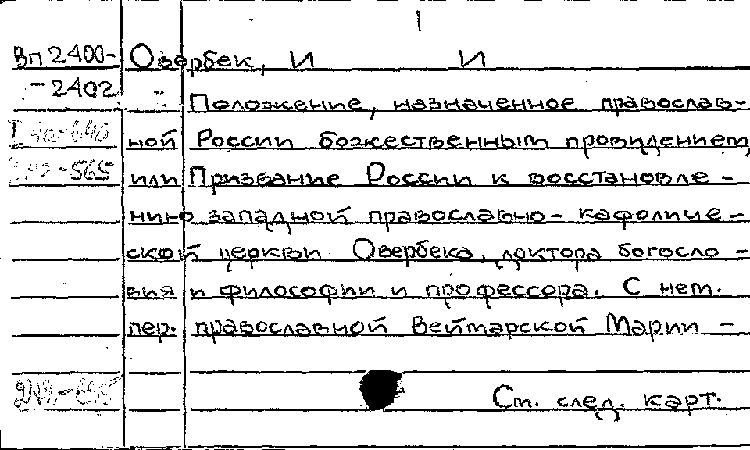 1
Вп 2400- Овербек, И И
-2402
Положение, назначенное православ-
ной России божественным провидением,
-565 или Призвание России к восстановле-
нию западной православно-кафоличе-
ской церкви Овербека, доктора богосло-
вия и философии и профессора. С нем.
пер. православной Веймарской Марии-
См. след. карт.